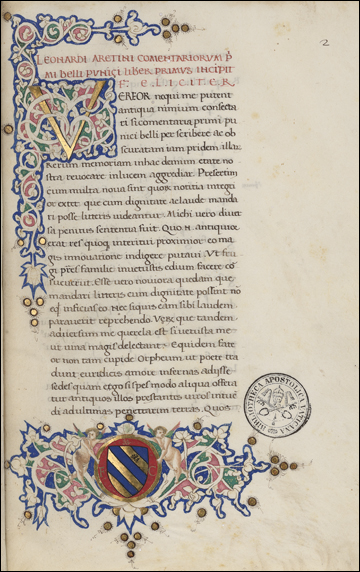 2
LEONARDI ARETINI COMENTARIORVM P̄
MI BELLI PVNICI LIBER PRIMVS INCIPIT
F E L I C I T E R
VEREOR ne qui me putent
antiqua nimium consecta
ri si comentaria primi pu
nici belli perscribere ac ob
scuratam iam pridem illaꝝ
rerum memoriam in hac demum etate no
stra reuocare in lucem aggrediar. Presertim
cum multa noua sint quoꝝ notitia integri
or extet que cum dignitate ac laude manda
ri posse litteris uideantur. Michi uero diuer
sa penitus sententia fuit. Quo antiquior
erat res interitui proximior eo ma
gis innouatione indigere putaui. Ut fru
gi pr̄es familie in uetustis edium facere co
sueuerūt. Esse uero nouiora quedam que
mandari litteris cum dignitate possent nō
inficias eo. Nec siquis eam sibi laudem
parauerit reprehendo. que tandem
aduersum me querela est si uetusta me
ut uina magis delectant. Equidem fate
or non tam cupide Orpheum ut poete tra
dunt euridicis amore infernas adisse
sedes quam ego si spes modo aliqua offera
tur antiquos illos prestantis uiros intue
di ad ultimas penetrarim terras. Quos
BIBLIOTHECA APOSTOLICA VATICANA